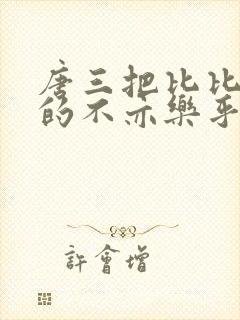 唐三把比比
的不亦樂乎
許會增